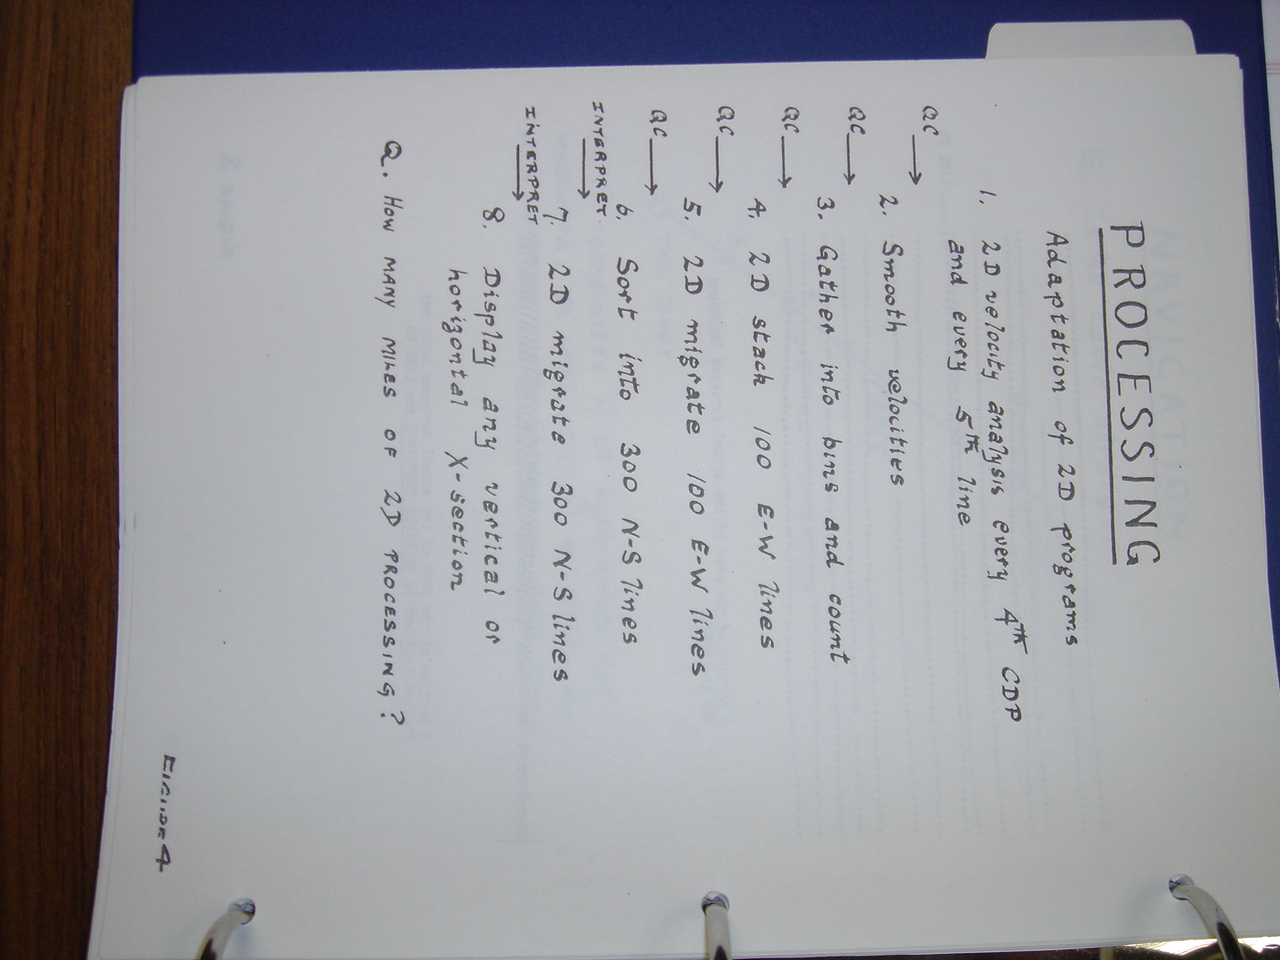 PROCESSING
Adaptation of 2D programs
1. 2D velocity analysis every 4TH CDP
and every 5TH line
QC →
2. Smooth velocities
QC →
3. Gather into bins and count
QC →
4. 2D stack 100 E-W lines
QC →
5. 2D migrate 100 E-W lines
QC →
6. Sort into 300 N-S lines
INTERPRET →
7. 2D migrate 300 N-S lines
INTERPRET →
8. Display any vertical or
horizontal X-section
Q. HOW MANY MILES OF 2D PROCESSING?
FIGURE 4